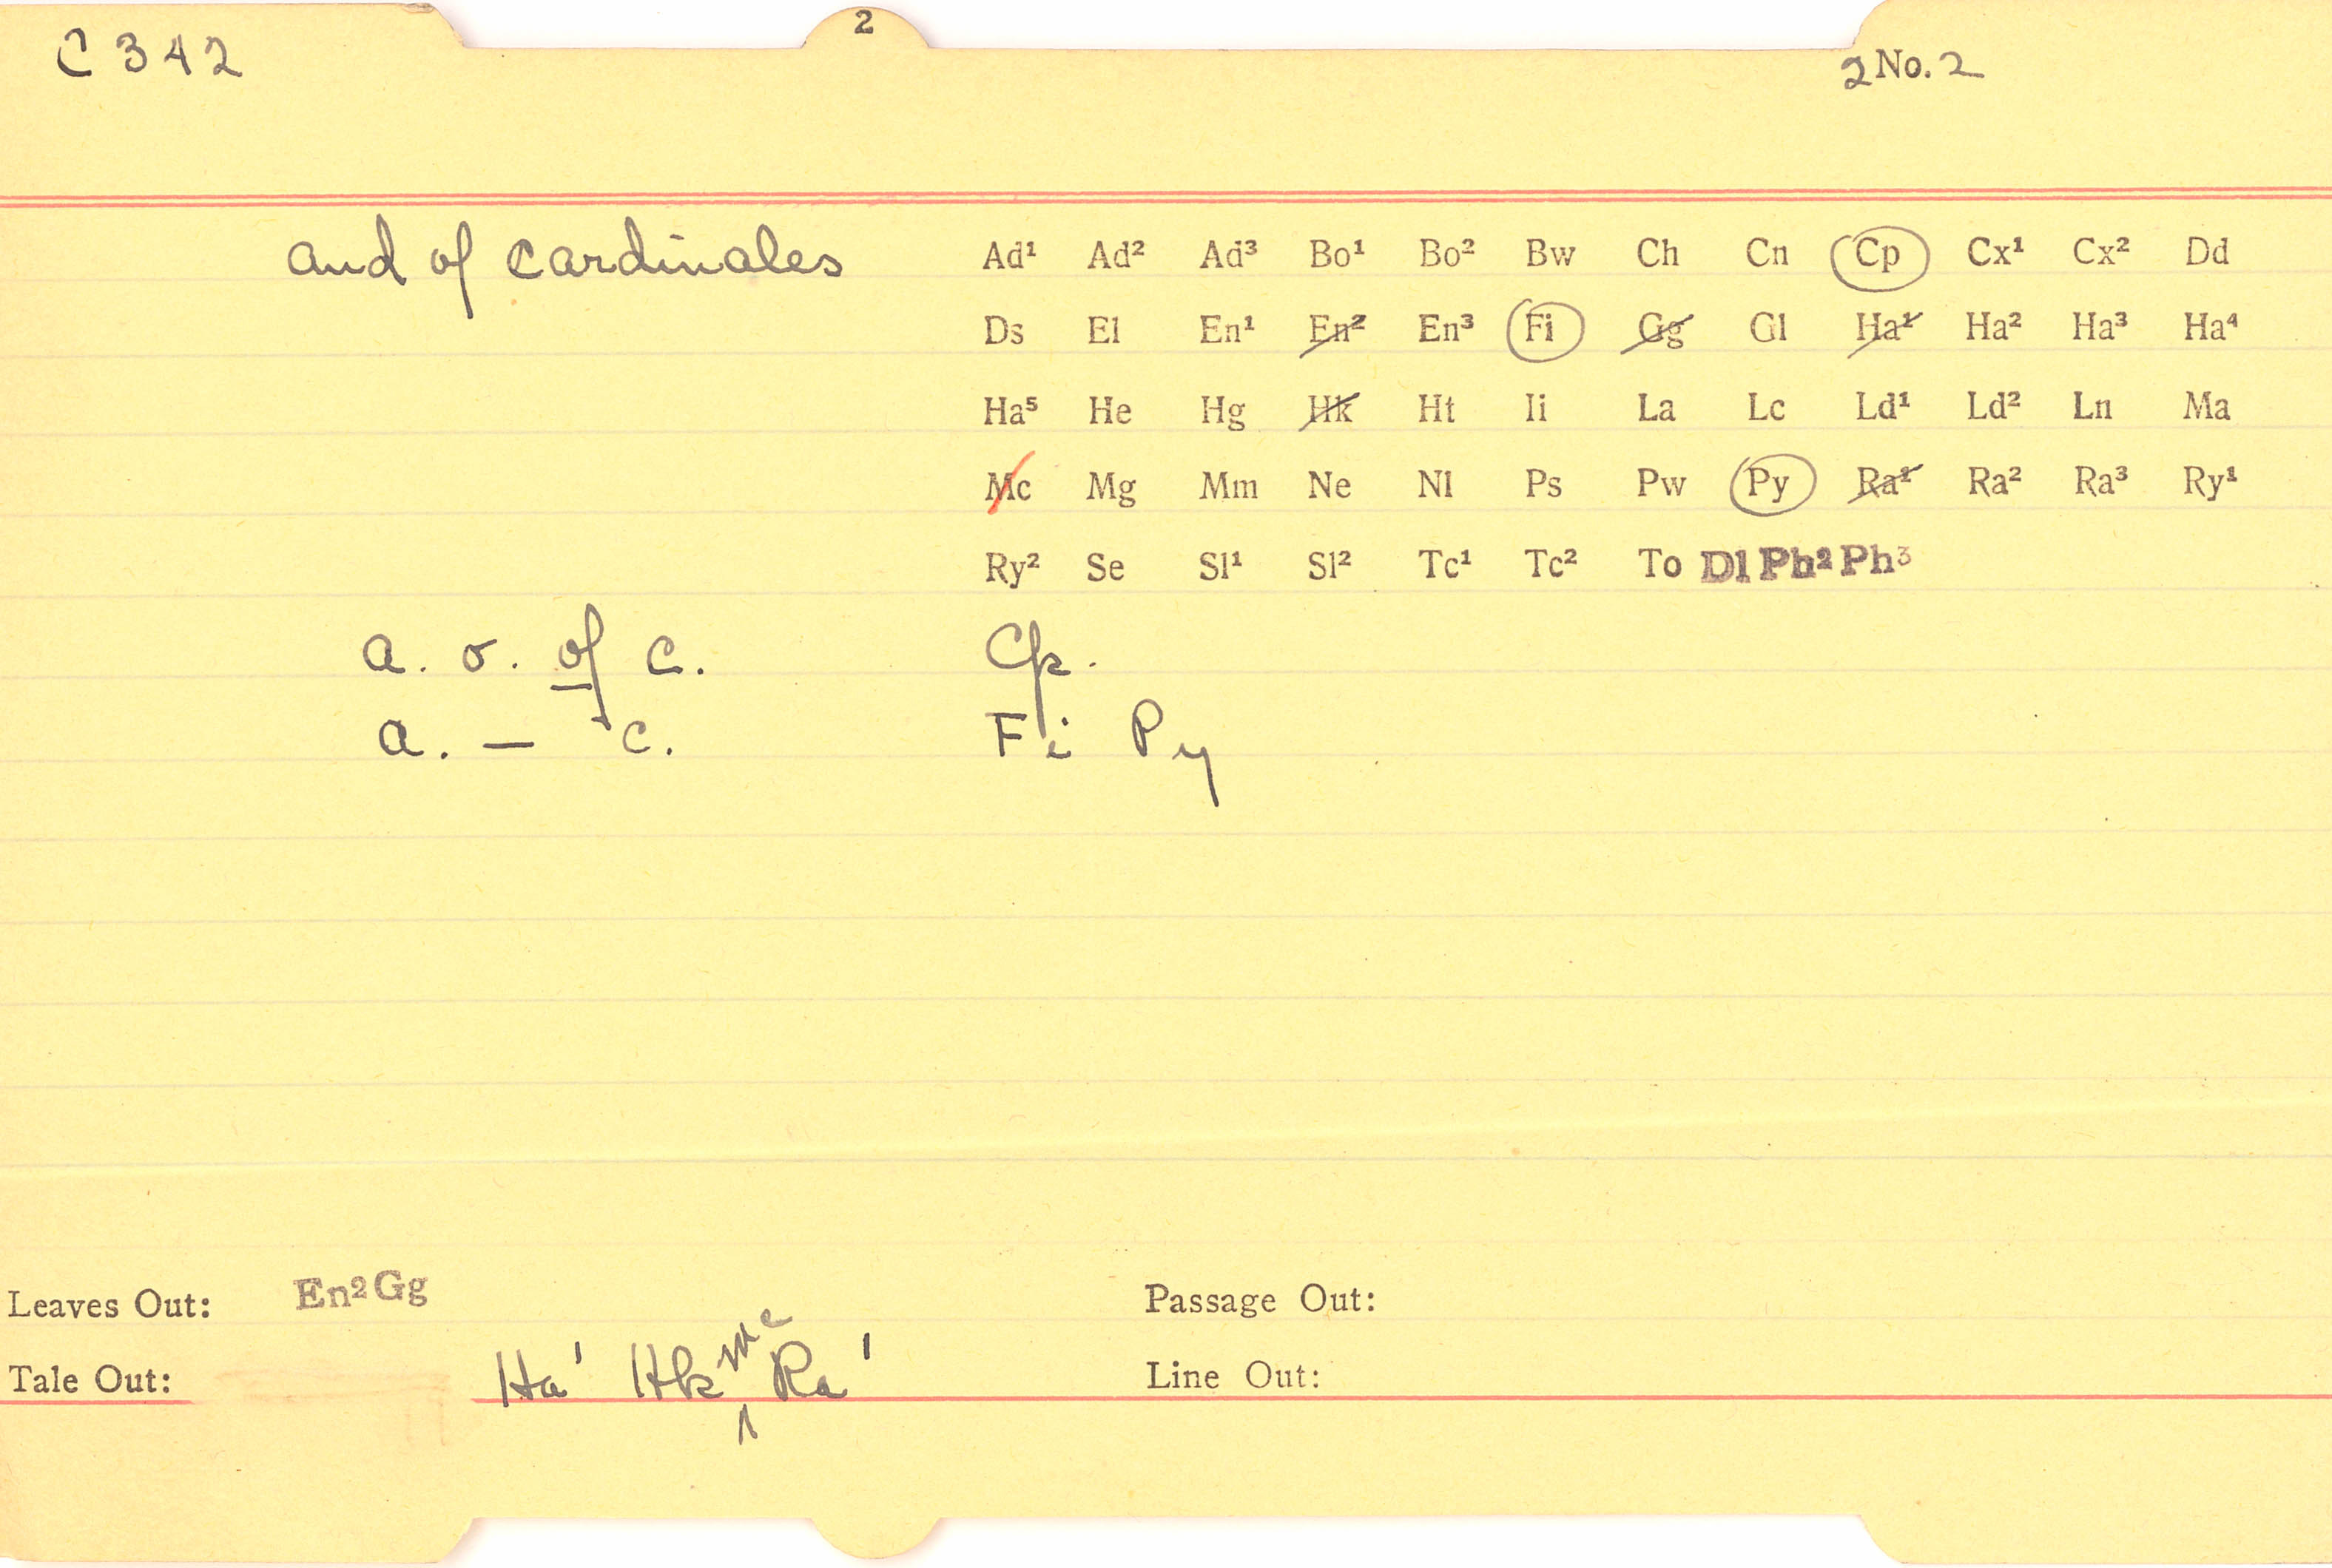 2
C 342
2 No. 2
and of cardinales
Ad¹ Ad² Ad³ Bo¹ Bo² Bw Ch Cn Cp Cx¹ Cx² Dd
Ds El En¹ En² En³ Fi Gg Gl Ha¹ Ha² Ha³ Ha⁴
Ha⁵ He Hg Hk Ht Ii La Lc Ld¹ Ld² Ln Ma
Mc Mg Mm Ne Nl Ps Pw Py Ra¹ Ra² Ra³ Ry¹
Ry² Se Sl¹ Sl² Tc¹ Tc² To Dl Ph² Ph³
a. o. of c. Cp.
a. — c. Fi Py
Leaves Out: En² Gg
Passage Out:
Tale Out: Ha¹ Hk Mc Ra¹
Line Out: